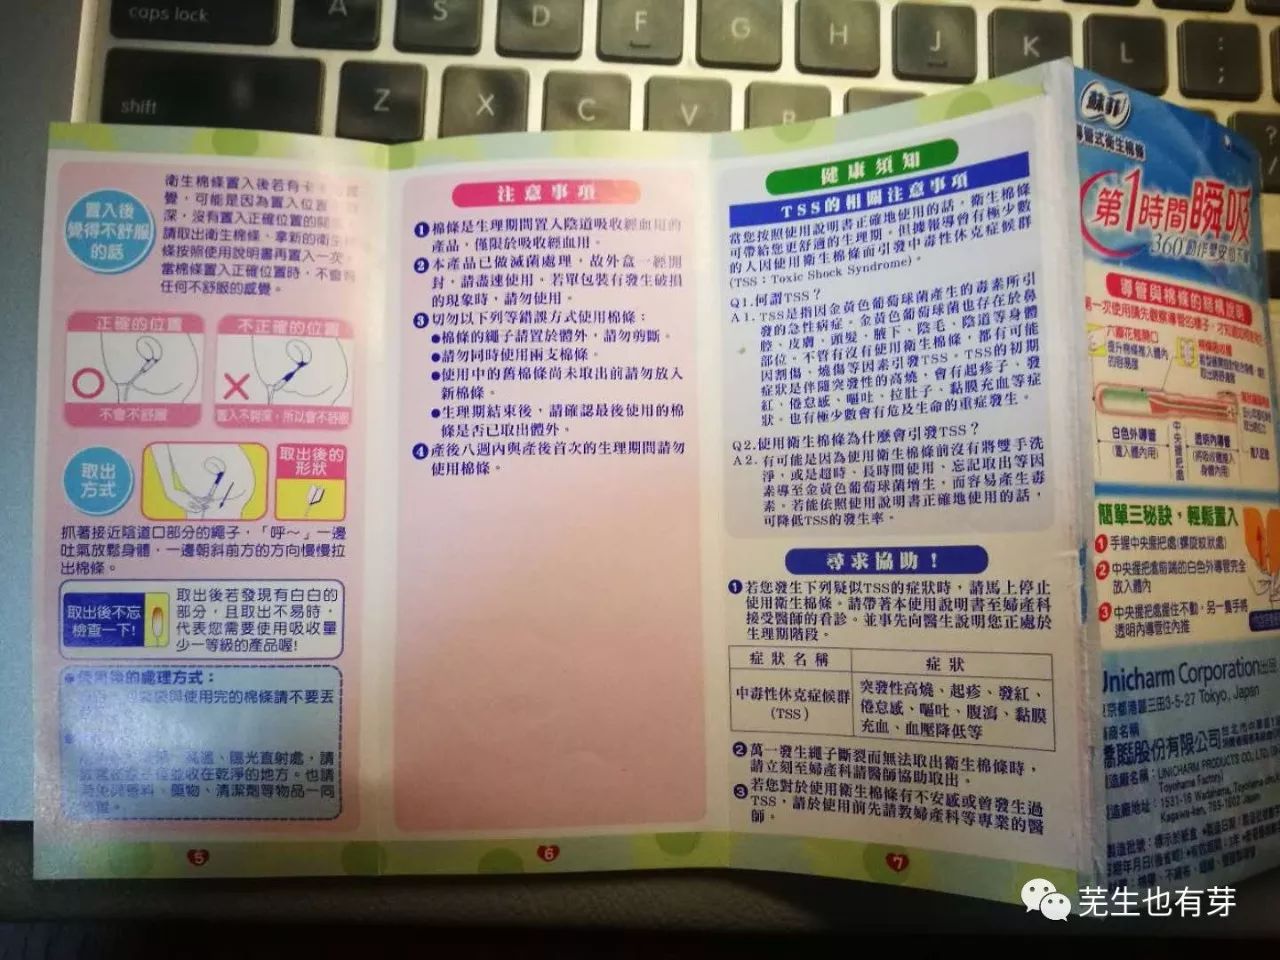 caps lock
A
S
D
F
G
H
J
K
L
shift
Z
X
C
V
置入後
覺得不舒服
的話
衛生棉條置入後若有卡
覺，可能是因為置入位置
深，沒有置入正確位置的關
請取出衛生棉條、拿新的衛生
條按照使用說明書再置入一次。
當棉條置入正確位置時，不會有
任何不舒服的感覺。
正確的位置
不會不舒服
不正確的位置
置入不夠深，所以會不舒服
取出
方式
取出後的
形狀
抓著接近陰道口部分的繩子，「呼～」一邊
吐氣放鬆身體，一邊朝斜前方的方向慢慢拉
出棉條。
取出後不忘
檢查一下!
取出後若發現有白白的
部分，且取出不易時，
代表您需要使用吸收量
少一等級的產品喔!
使用後的處理方式：
與使用完的棉條請不要丟
高溫、陽光直射處，請
並收在乾淨的地方。也請
藥物、清潔劑等物品一同
5
注意事項
1 棉條是生理期間置入陰道吸收經血用的
產品，僅限於吸收經血用。
2 本產品已做滅菌處理，故外盒一經開
封，請盡速使用。若單包裝有發生破損
的現象時，請勿使用。
3 切勿以下列等錯誤方式使用棉條：
●棉條的繩子請置於體外，請勿剪斷。
●請勿同時使用兩支棉條。
●使用中的舊棉條尚未取出前請勿放入
新棉條。
●生理期結束後，請確認最後使用的棉
條是否已取出體外。
4 產後八週內與產後首次的生理期間請勿
使用棉條。
6
健康須知
TSS的相關注意事項
當您按照使用說明書正確地使用的話，衛生棉條
可帶給您更舒適的生理期。但據報導曾有極少數
的人因使用衛生棉條而引發中毒性休克症候群
(TSS：Toxic Shock Syndrome)。
Q1.何謂TSS？
A1. TSS是指因金黃色葡萄球菌產生的毒素所引
發的急性病症。金黃色葡萄球菌也存在於鼻
腔、皮膚、頭髮、腋下、陰毛、陰道等身體
部位。不管有沒有使用衛生棉條，都有可能
因割傷、燒傷等因素引發TSS。TSS的初期
症狀是伴隨突發性的高燒，會有起疹子、發
紅、倦怠感、嘔吐、拉肚子、黏膜充血等症
狀。也有極少數會有危及生命的重症發生。
Q2.使用衛生棉條為什麼會引發TSS？
A2. 有可能是因為使用衛生棉條前沒有將雙手洗
淨，或是超時、長時間使用、忘記取出等因
素導至金黃色葡萄球菌增生，而容易產生毒
素。若能依照使用說明書正確地使用的話，
可降低TSS的發生率。
尋求協助！
1 若您發生下列疑似TSS的症狀時，請馬上停止
使用衛生棉條。請帶著本使用說明書至婦產科
接受醫師的看診。並事先向醫生說明您正處於
生理期階段。
症狀名稱
症狀
中毒性休克症候群
(TSS)
突發性高燒、起疹、發紅、
倦怠感、嘔吐、腹瀉、黏膜
充血、血壓降低等
2 萬一發生繩子斷裂而無法取出衛生棉條時，
請立刻至婦產科請醫師協助取出。
3 若您對於使用衛生棉條有不安感或曾發生過
TSS，請於使用前先請教婦產科等專業的醫
師。
7
蘇菲
導管式衛生棉條
第1時間瞬吸
導管與棉條的結構說明
第一次使用請先觀察導管的樣子
白色外導管
(置入體內用)
中央握把處
透明內導管
簡單三秘訣，輕鬆置入
1 手握中央握把處(螺旋紋狀處)
2 中央握把處前端的白色外導管完全
放入體內
3 中央握把處握住不動，另一隻手將
透明內導管往內推
Unicharm Corporation
東京都港區三田3-5-27 Tokyo, Japan
商名稱
股份有限公司
製造廠名稱：UNICHARM PRODUCTS CO., LTD.
Toyohama Factory)
製造廠地址：1531-16 Wadahama, Toyohama
Kagawa-ken, 769-1602 Japan
芜生也有芽